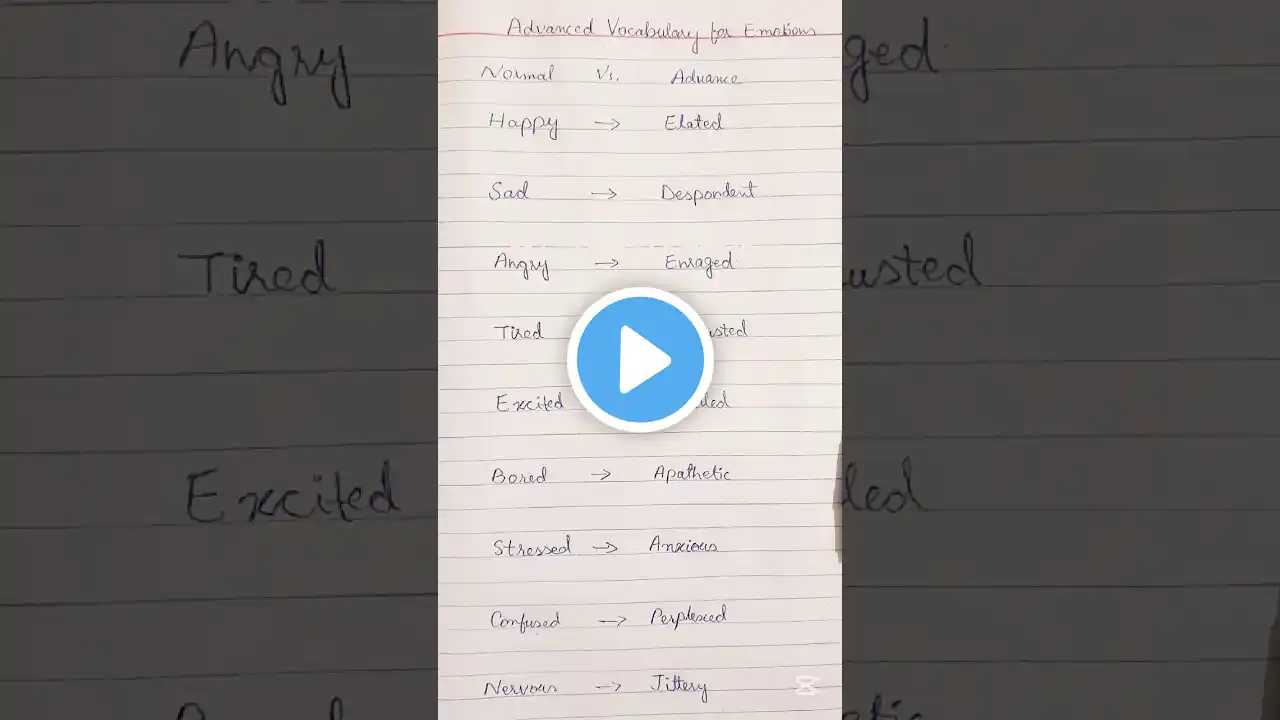 Advanced Vocabulary for Emotions
Normal Vs. Advance
Happy → Elated
Sad → Despondent
Angry → Enraged
Tired
Excited
Bored → Apathetic
Stressed → Anxious
Confused → Perplexed
Nervous → Jittery